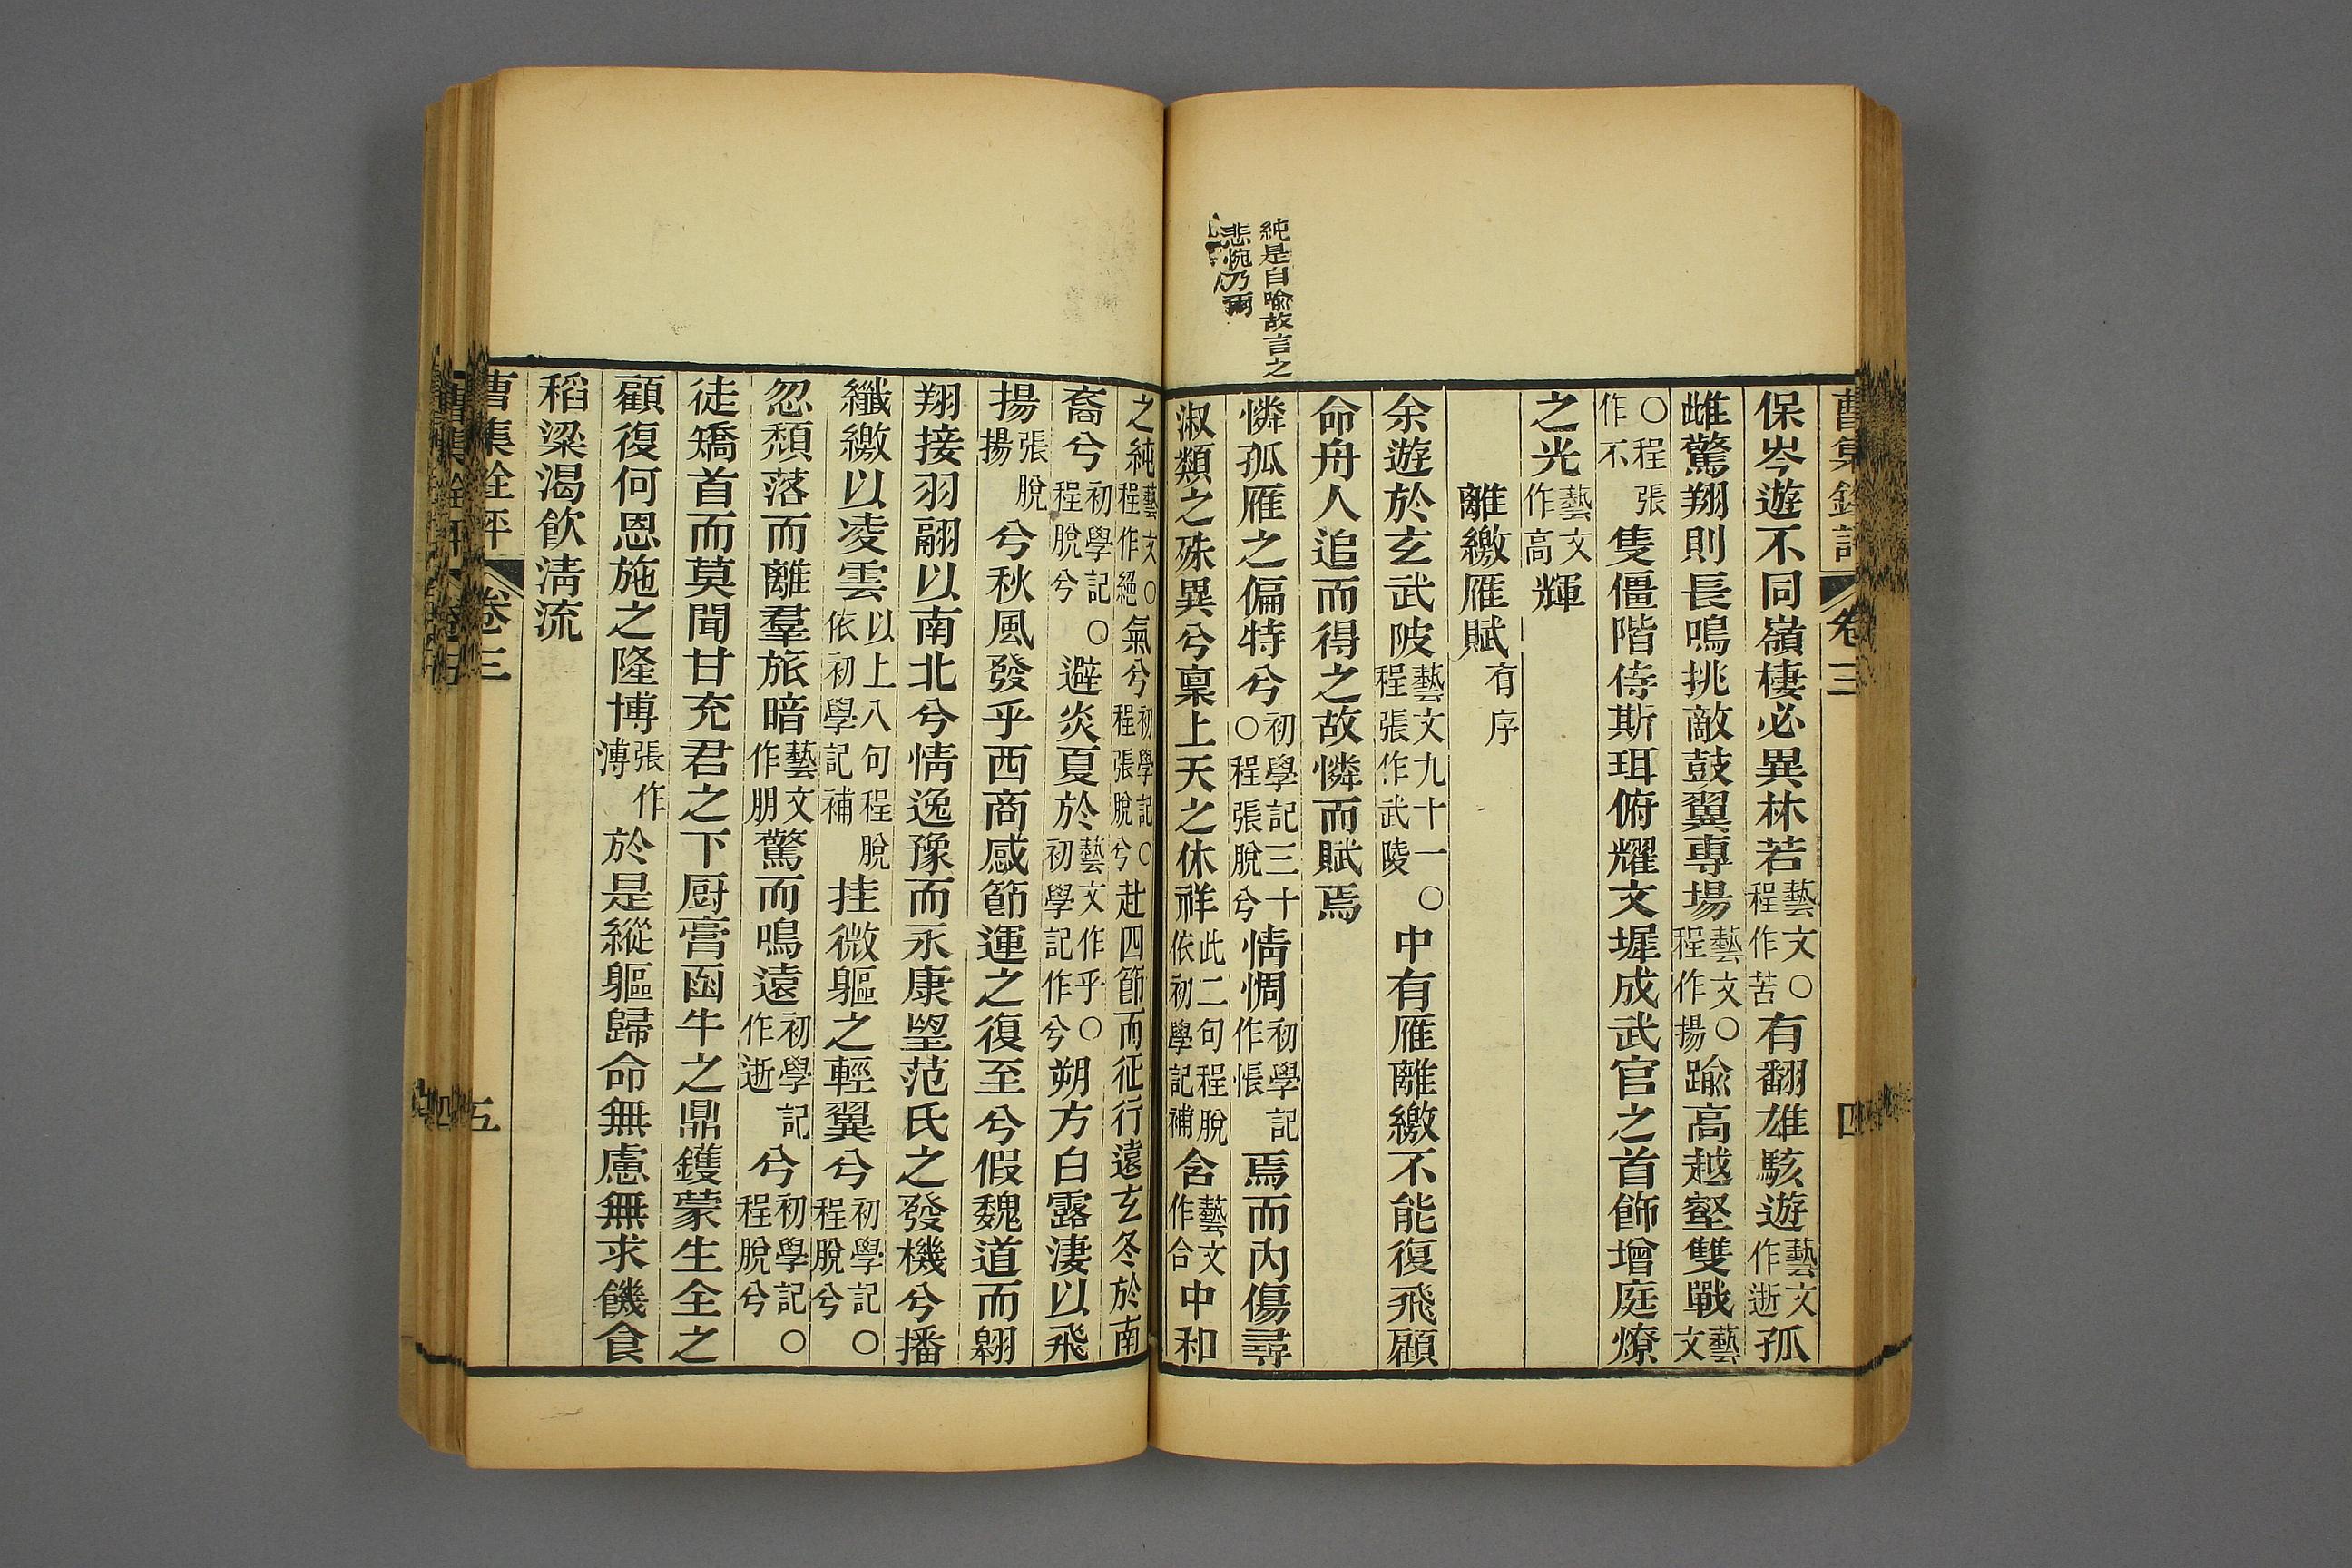 曹集銓評 卷三 四
保岑遊不同嶺棲必異林若藝文○程作苦有翻雄駭遊藝文作逝孤
雌驚翔則長鳴挑敵鼓翼專場藝文○程作揚踰高越壑雙戰藝文
○程張作不隻僵階侍斯珥俯耀文墀成武官之首飾增庭燎
之光藝文作高輝
離繳雁賦有序
余遊於玄武陂藝文九十一○程張作武陵中有雁離繳不能復飛顧
命舟人追而得之故憐而賦焉
純是自喻故言之
悲惋乃爾
憐孤雁之偏特兮初學記三十○程張脫兮情惆初學記作悵焉而內傷尋
淑類之殊異兮稟上天之休祥此二句程脫依初學記補含藝文作合中和
之純藝文○程作絕氣兮初學記○程張脫兮赴四節而征行遠玄冬於南
裔兮初學記○程脫兮避炎夏於藝文作乎○初學記作兮朔方白露淒以飛
揚張脫揚兮秋風發乎西商感節運之復至兮假魏道而翱
翔接羽翮以南北兮情逸豫而永康望范氏之發機兮播
纖繳以凌雲以上八句程脫依初學記補挂微軀之輕翼兮初學記○程脫兮
忽頹落而離羣旅暗藝文作朋驚而鳴遠初學記作逝兮初學記○程脫兮
徒矯首而莫聞甘充君之下厨膏函牛之鼎鑊蒙生全之
顧復何恩施之隆博張作溥於是縱軀歸命無慮無求饑食
稻粱渴飲淸流
曹集銓評 卷三 五